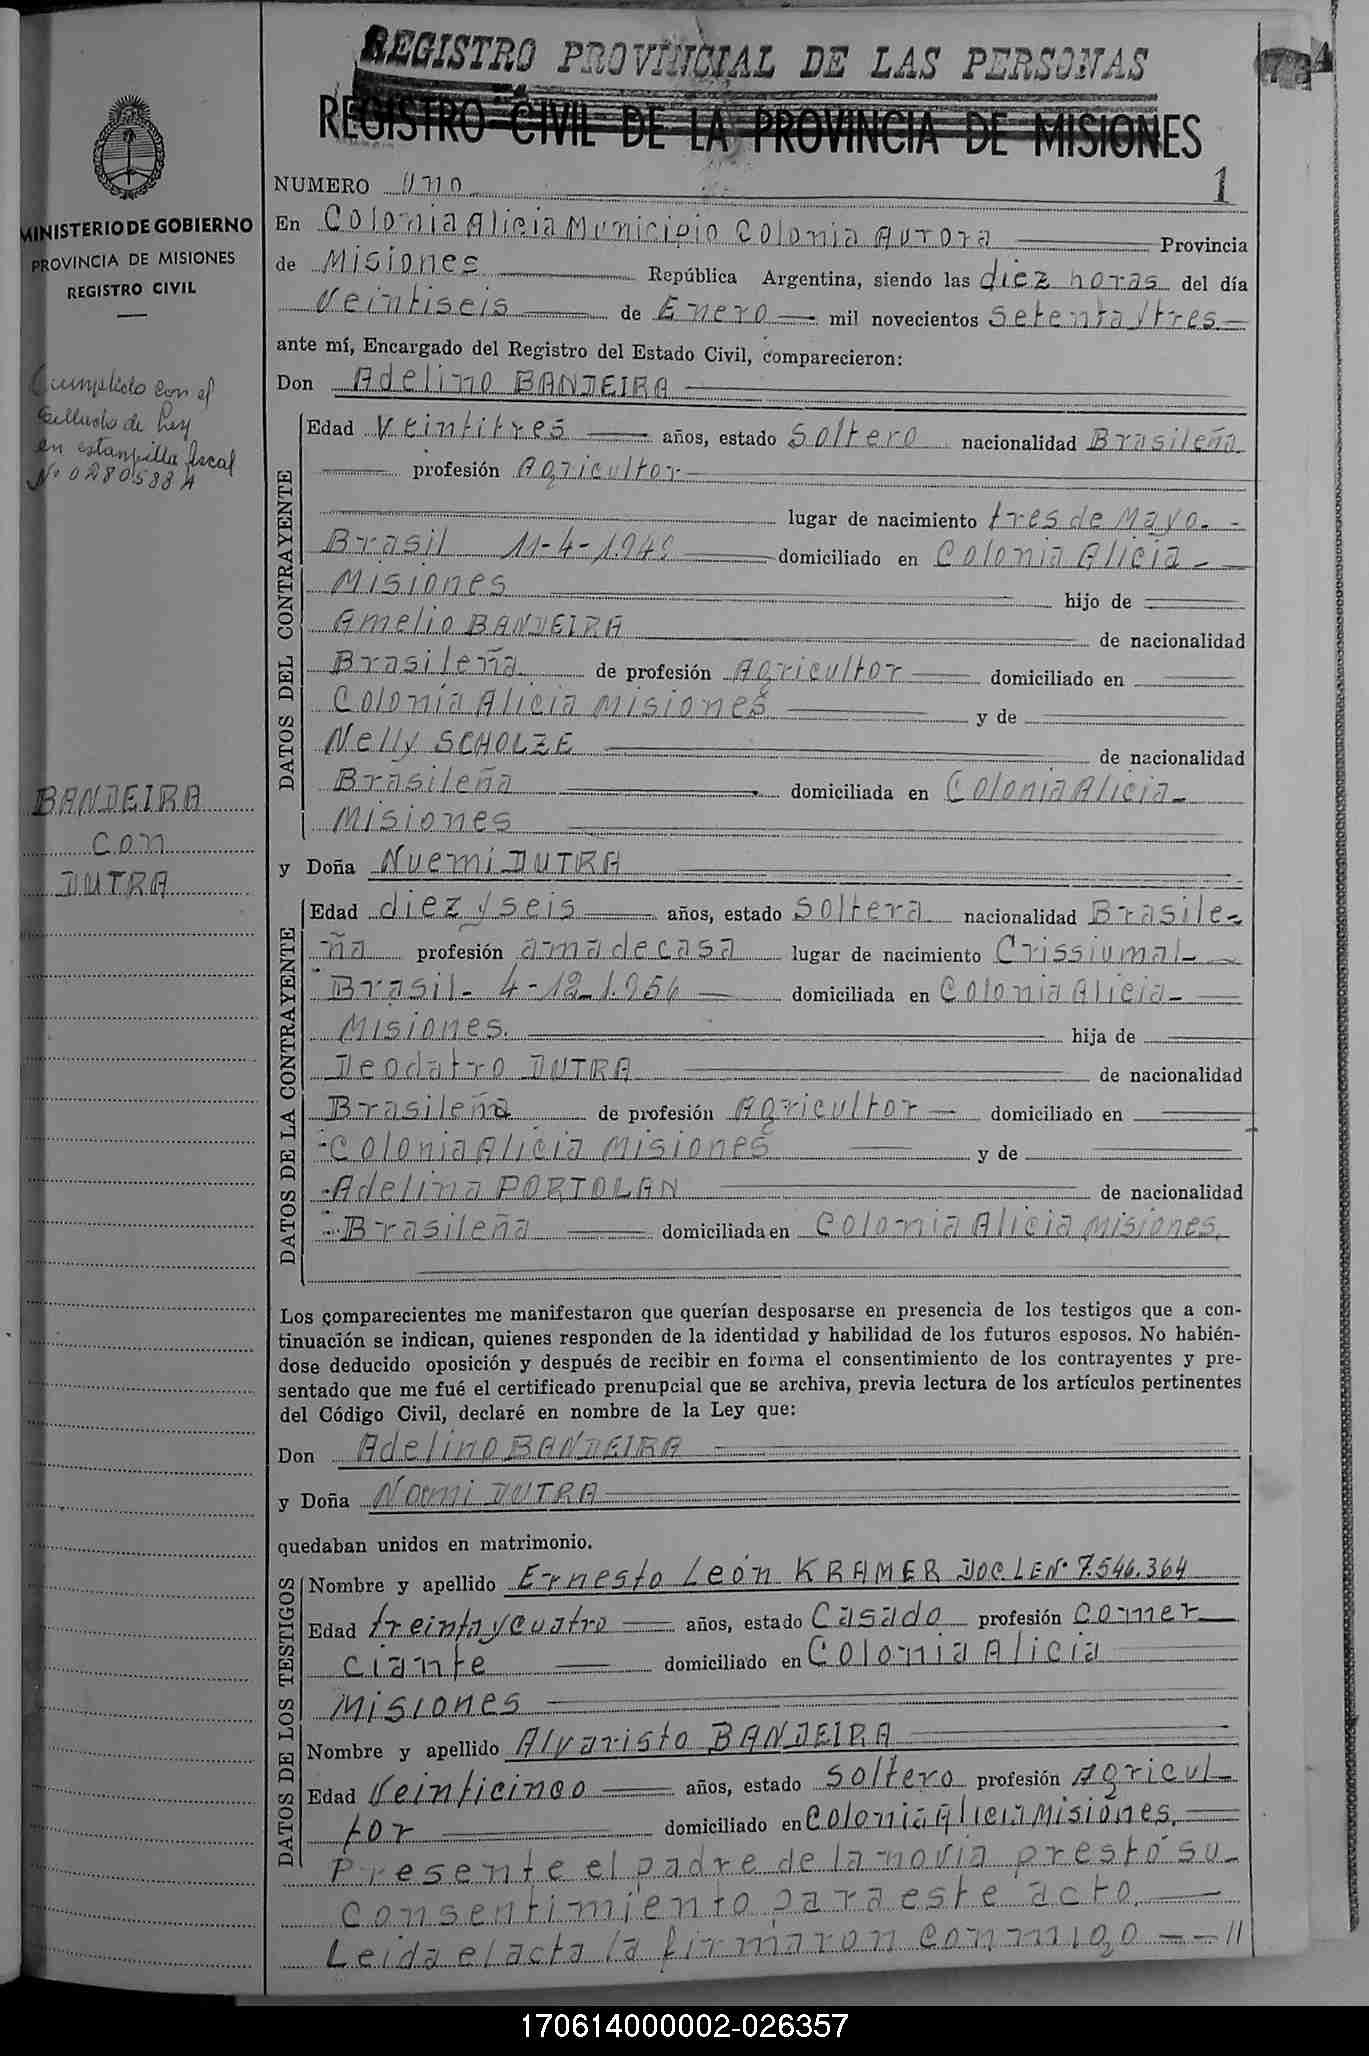 REGISTRO PROVINCIAL DE LAS PERSONAS
REGISTRO CIVIL DE LA PROVINCIA DE MISIONES
MINISTERIO DE GOBIERNO
PROVINCIA DE MISIONES
REGISTRO CIVIL
Cumplido con el
Sellado de Ley
en estampilla fiscal
Nº 0280583A
BANDEIRA
con
DUTRA
1
NUMERO uno
En Colonia Alicia Municipio Colonia Aurora Provincia
de Misiones República Argentina, siendo las diez horas del día
Veintiseis de Enero mil novecientos setenta y tres
ante mí, Encargado del Registro del Estado Civil, comparecieron:
Don Adelino BANDEIRA
DATOS DEL CONTRAYENTE
Edad Veintitres años, estado Soltero nacionalidad Brasileña
profesión Agricultor
lugar de nacimiento tres de Mayo.-
Brasil 11-4-1.949 domiciliado en Colonia Alicia-
Misiones hijo de
Amelio BANDEIRA de nacionalidad
Brasileña de profesión Agricultor domiciliado en
Colonia Alicia Misiones y de
Nelly SCHOLZE de nacionalidad
Brasileña domiciliada en Colonia Alicia-
Misiones
y Doña Nuemi DUTRA
DATOS DE LA CONTRAYENTE
Edad diez y seis años, estado Soltera nacionalidad Brasile-
ña profesión ama de casa lugar de nacimiento Crissiumal-
Brasil- 4-12-1.956 domiciliada en Colonia Alicia-
Misiones. hija de
Deodatro DUTRA de nacionalidad
Brasileña de profesión Agricultor domiciliado en
Colonia Alicia Misiones y de
Adelina PORTOLAN de nacionalidad
Brasileña domiciliada en Colonia Alicia Misiones.
Los comparecientes me manifestaron que querían desposarse en presencia de los testigos que a con-
tinuación se indican, quienes responden de la identidad y habilidad de los futuros esposos. No habién-
dose deducido oposición y después de recibir en forma el consentimiento de los contrayentes y pre-
sentado que me fué el certificado prenupcial que se archiva, previa lectura de los artículos pertinentes
del Código Civil, declaré en nombre de la Ley que:
Don Adelino BANDEIRA
y Doña Nuemi DUTRA
quedaban unidos en matrimonio.
DATOS DE LOS TESTIGOS
Nombre y apellido Ernesto León KRAMER DOC. LE Nº 7.546.364
Edad treinta y cuatro años, estado Casado profesión comer
ciante domiciliado en Colonia Alicia
Misiones
Nombre y apellido Alvaristo BANDEIRA
Edad Veinticinco años, estado Soltero profesión Agricul-
tor domiciliado en Colonia Alicia Misiones.
Presente el padre de la novia prestó su-
consentimiento para este acto.
Leida el acta la firmaron conmigo --//
170614000002-026357